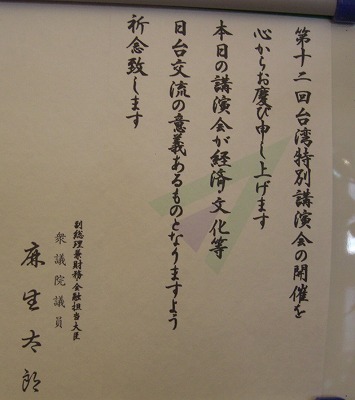 第十二回台湾特別講演会の開催を
心からお慶び申し上げます
本日の講演会が経済文化等
日台交流の意義あるものとなりますよう
祈念致します
副総理兼財務金融担当大臣
衆議院議員
麻生太郎